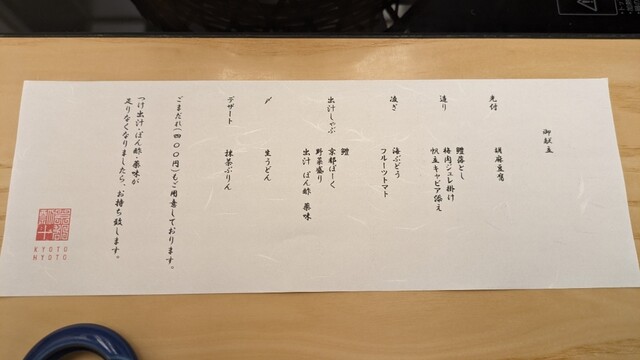 御献立
先付
胡麻豆腐
造り
鱧落とし
梅肉ジュレ掛け
帆立キャビア添え
凌ぎ
海ぶどう
フルーツトマト
出汁しゃぶ
鱧
京都ぽーく
野菜盛り
出汁 ぽん酢 薬味
〆
生うどん
デザート
抹茶ぷりん
ごまだれ(四〇〇円)もご用意しております。
つけ出汁・ぽん酢・薬味が
足りなくなりましたら、お持ち致します。
KYOTO
NYOTO